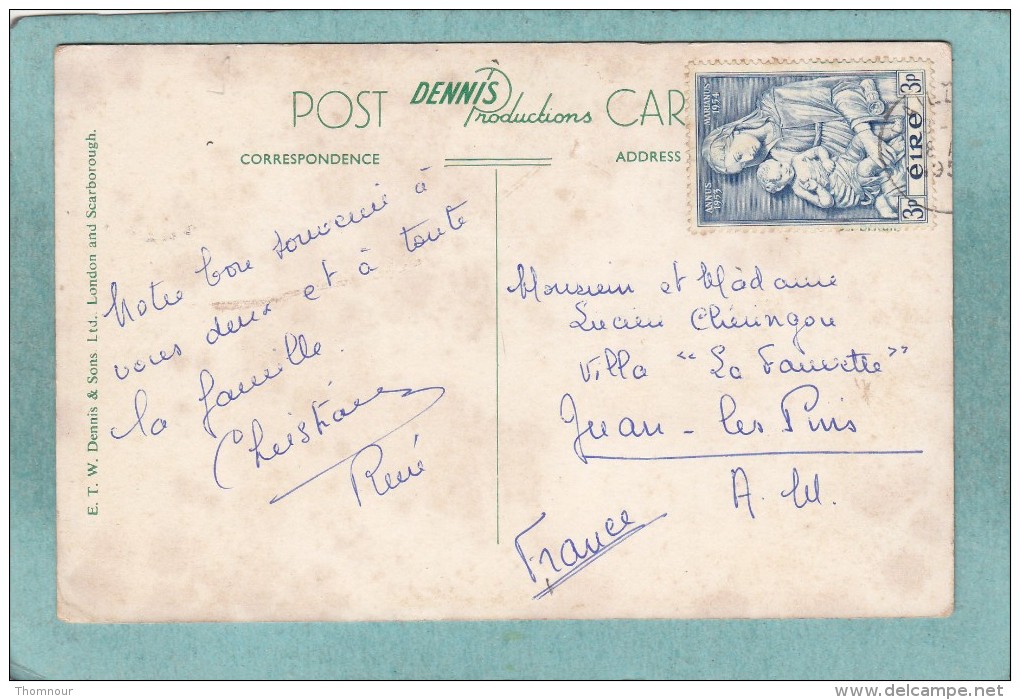 POST
DENNIS
Productions
CAR
CORRESPONDENCE
ADDRESS
E. T. W. Dennis & Sons Ltd., London and Scarborough.
ANNUS 1953
MARIANUS 1954
3p éIRe 3p
195
Notre bon souvenir à
vous deux et à toute
la famille.
Christiane
René
Monsieur et Màdame
Lucien
Villa "La Fauvette"
Juan-les Pins
A. M.
France
Thomnour
www.delcampe.net